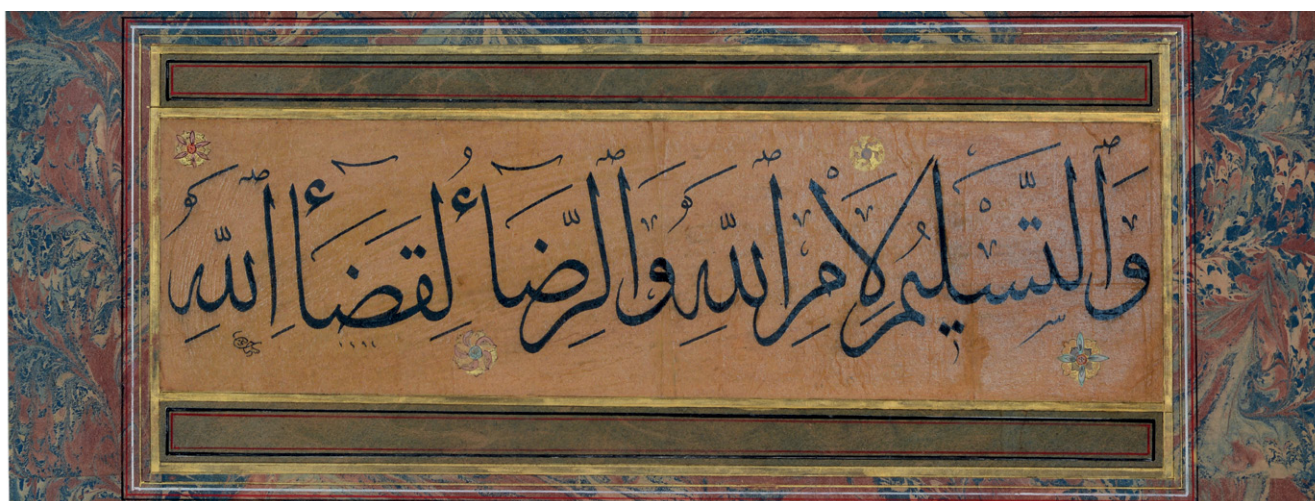 وَٱلتَّسْلِيمُ لِأَمْرِ ٱللّٰهِ وَٱلرِّضَاءُ لِقَضَاءِ ٱللّٰهِ